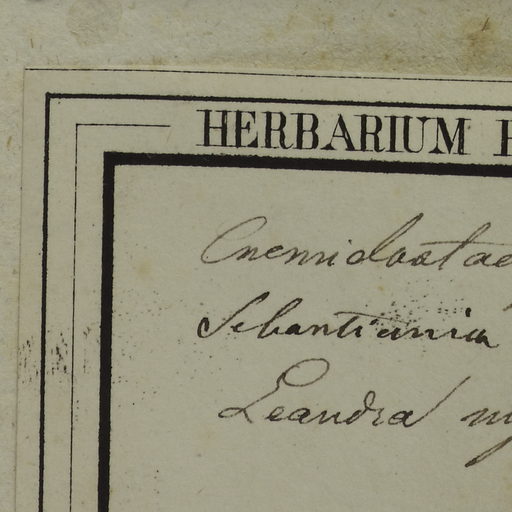 HERBARIUM
Cnemidostae
Sebantiania
Leandra my